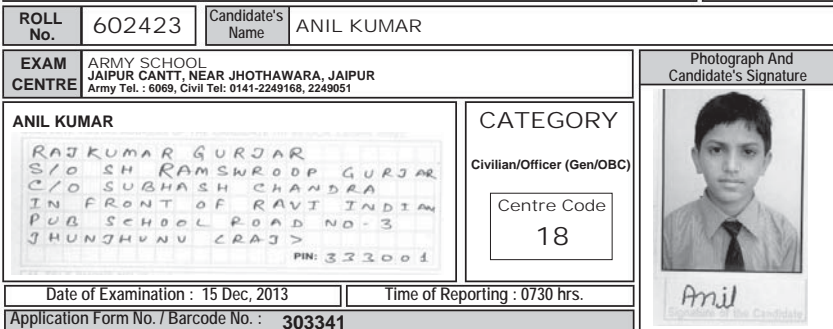 ROLL No. 602423 Candidate's Name ANIL KUMAR
EXAM CENTRE
ARMY SCHOOL
JAIPUR CANTT, NEAR JHOTHAWARA, JAIPUR
Army Tel. : 6069, Civil Tel: 0141-2249168, 2249051
Photograph And
Candidate's Signature
ANIL KUMAR
RAJKUMAR GURJAR
S/O SH RAMSWROOP GURJAR
C/O SUBHASH CHANDRA
IN FRONT OF RAVI INDIAN
PUB SCHOOL ROAD NO-3
JHUNJHUNU (RAJ)
PIN: 333001
CATEGORY
Civilian/Officer (Gen/OBC)
Centre Code
18
Anil
Signature of the Candidate
Date of Examination : 15 Dec, 2013
Time of Reporting : 0730 hrs.
Application Form No. / Barcode No. : 303341